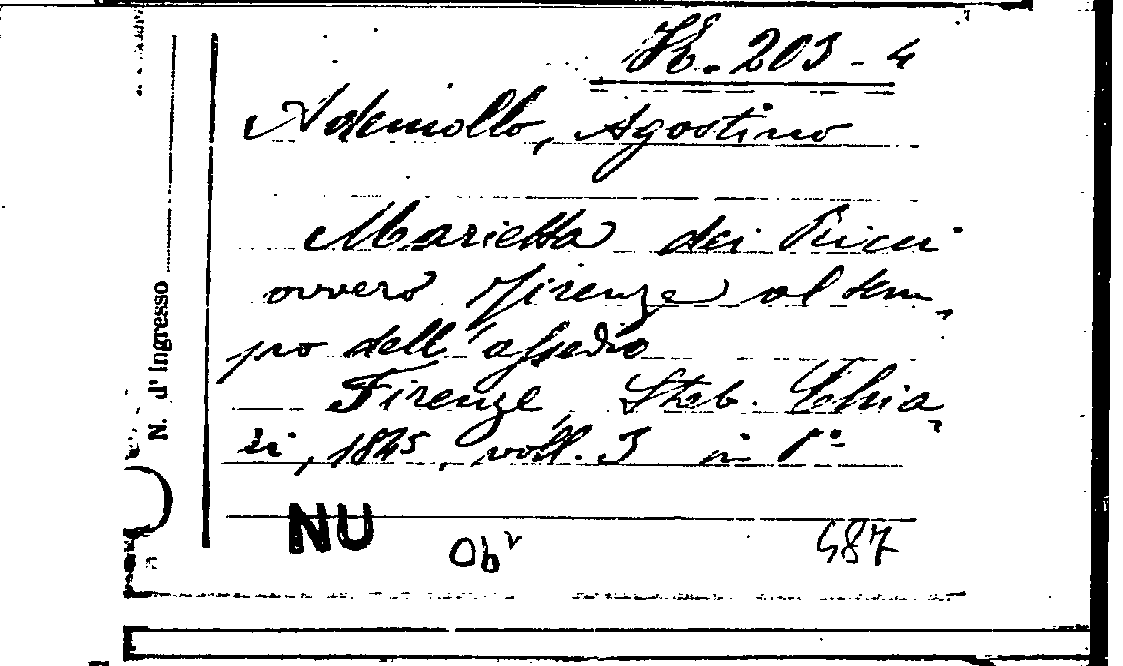 203-4
Ademollo, Agostino
Marietta dei Ricci
ovvero Firenze al tem-
po dell'assedio
Firenze, Stab. Chia-
ri, 1845, voll. 3 in 8°
N. d'Ingresso
NU
Ob
487